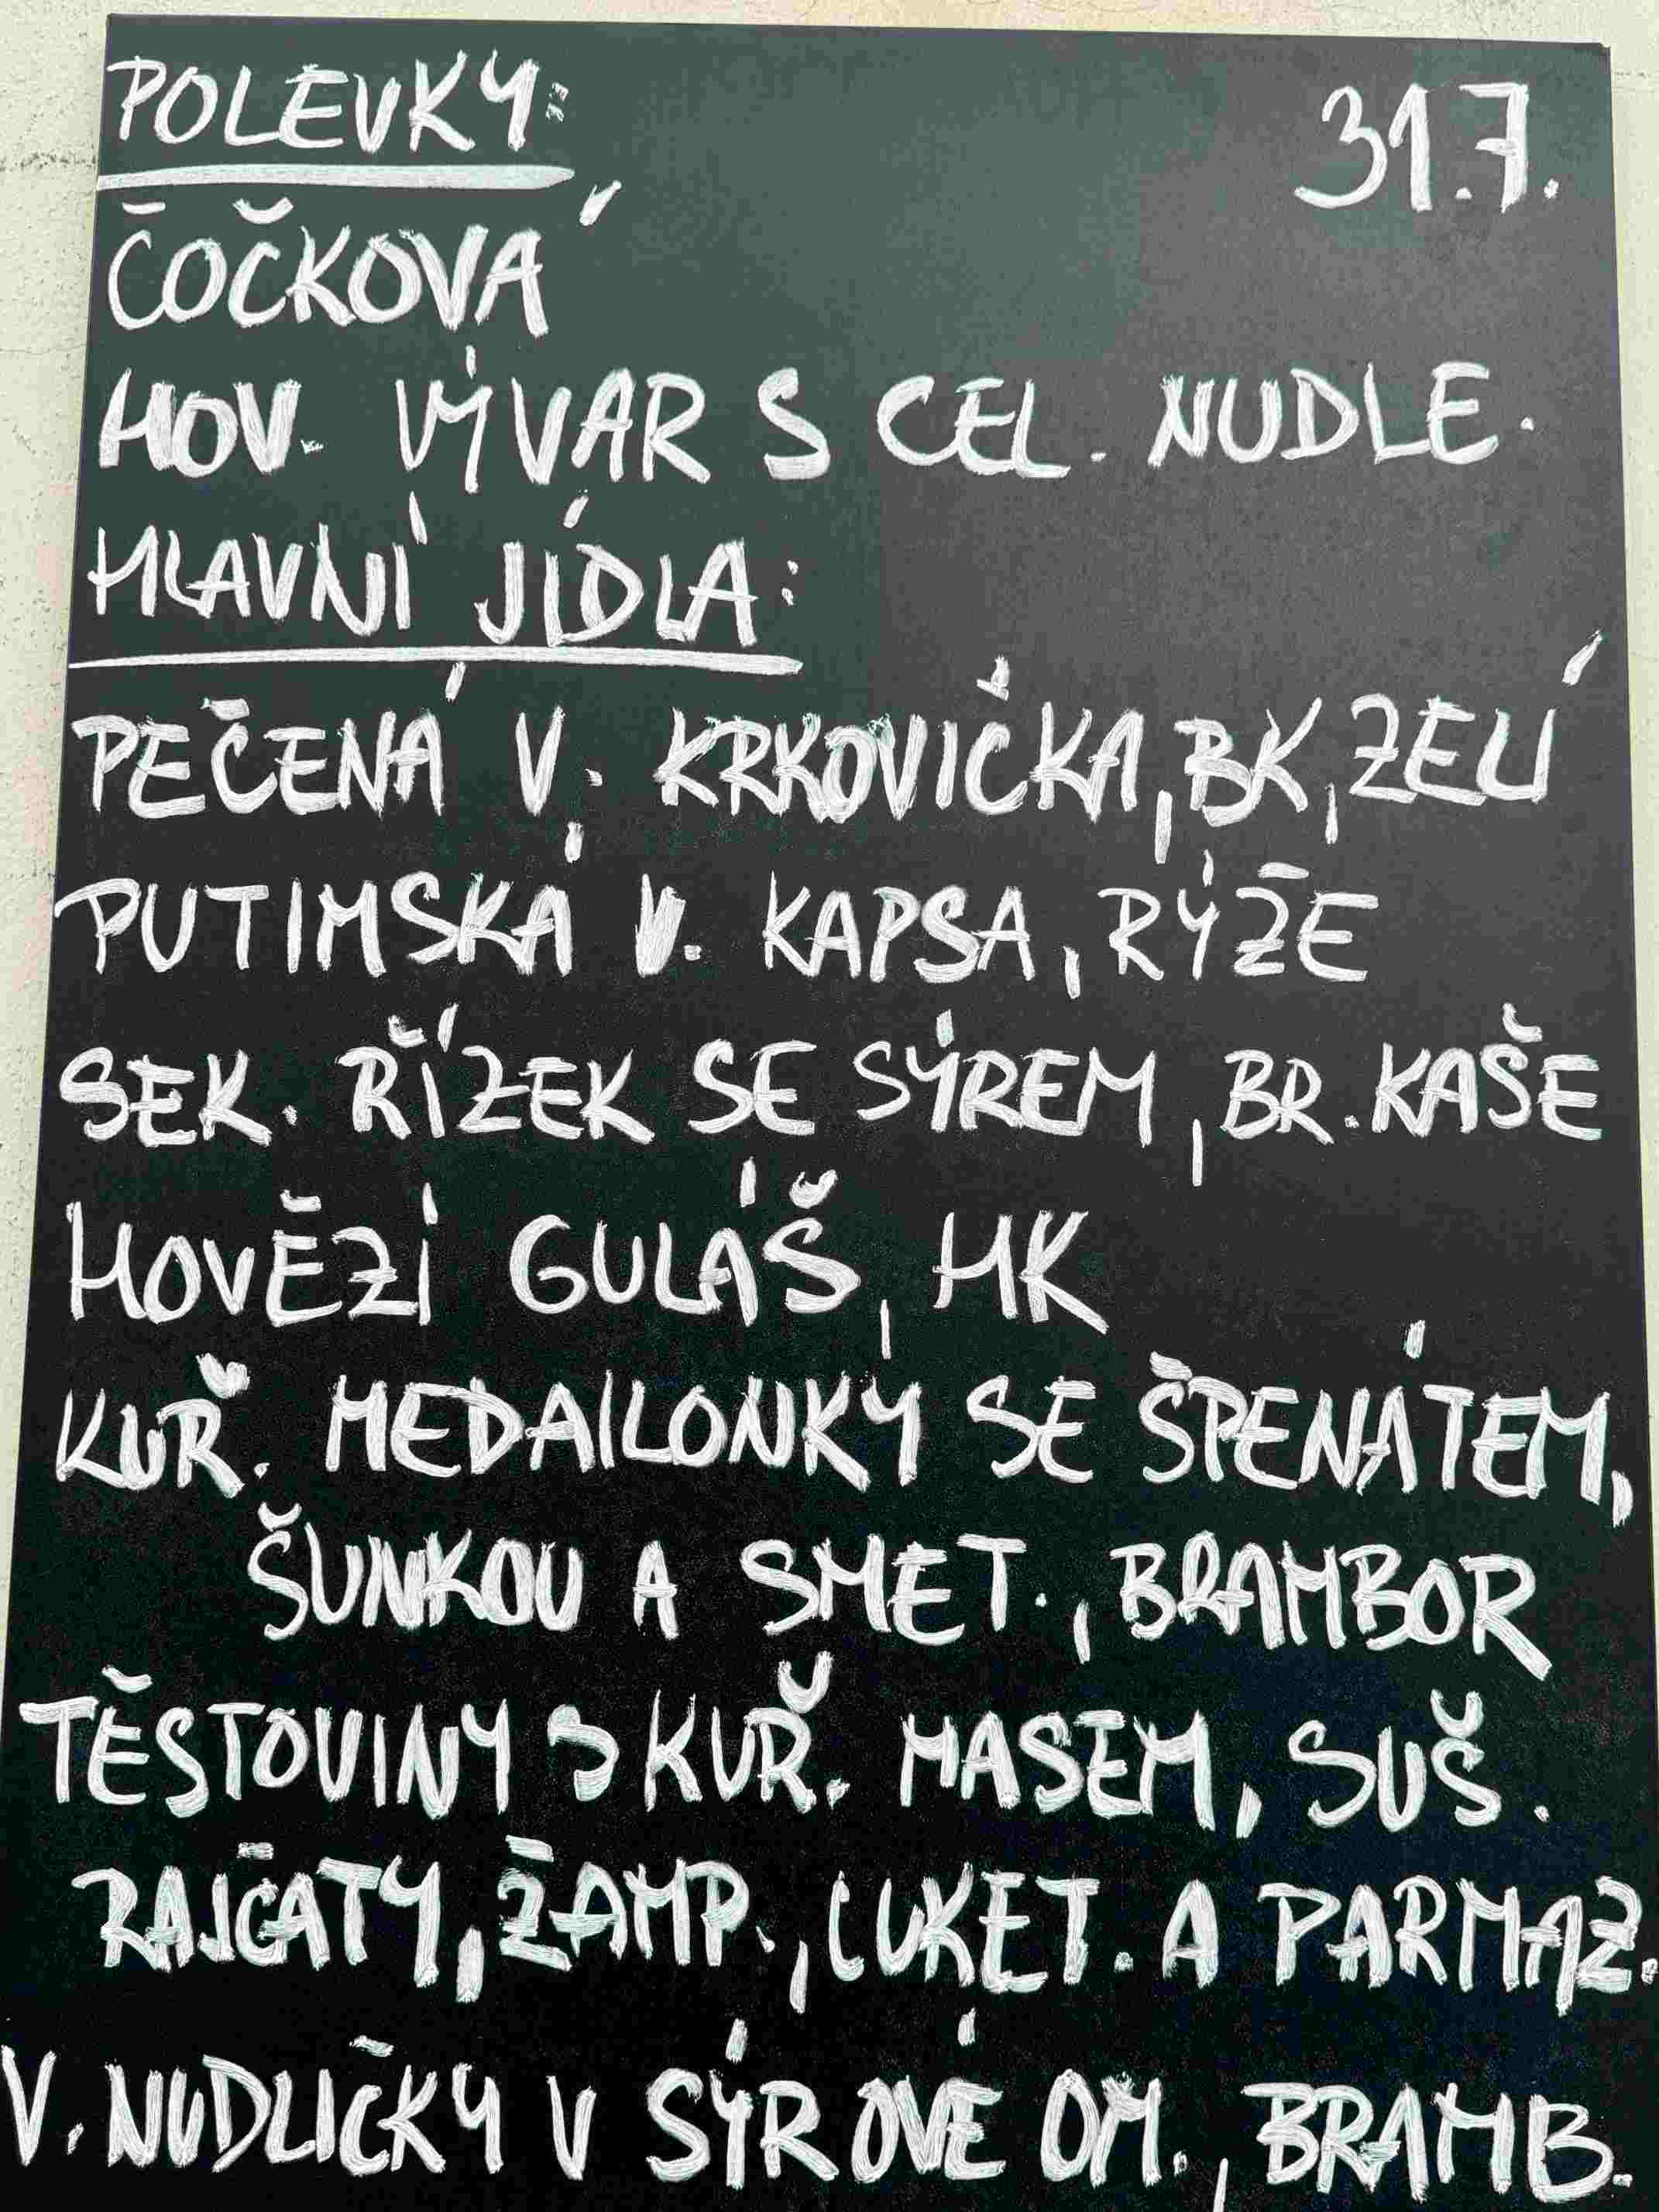 POLEVKY:
31.7.
ČOČKOVÁ
HOV. VÝVAR S CEL. NUDLE.
HLAVNÍ JÍDLA:
PEČENÁ V. KRKOVIČKA, BK, ZELÍ
PUTIMSKÁ V. KAPSA, RÝŽE
SEK. ŘÍZEK SE SÝREM, BR. KAŠE
HOVĚZÍ GULÁŠ, HK
KUŘ. MEDAILONKY SE ŠPENÁTEM,
ŠUNKOU A SMET., BRAMBOR
TĚSTOVINY S KUŘ. MASEM, SUŠ.
RAJČATY, ŽAMP., CUKET. A PARMAZ.
V. NUDLIČKY V SÝROVÉ OM., BRAMB.